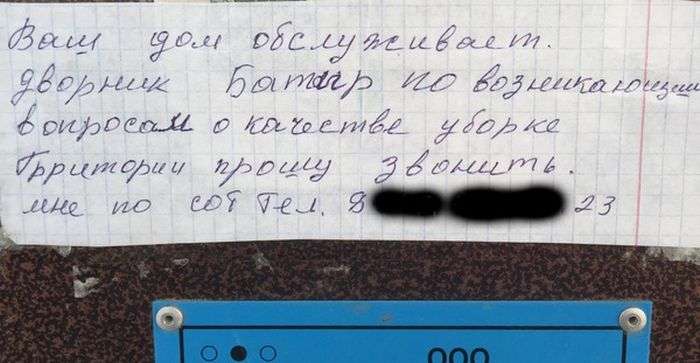 Ваш дом обслуживает.
дворник Батыр по возникающим
вопросам о качестве уборке
Територии прошу звонить.
мне по сот Тел. 8 23
ООО